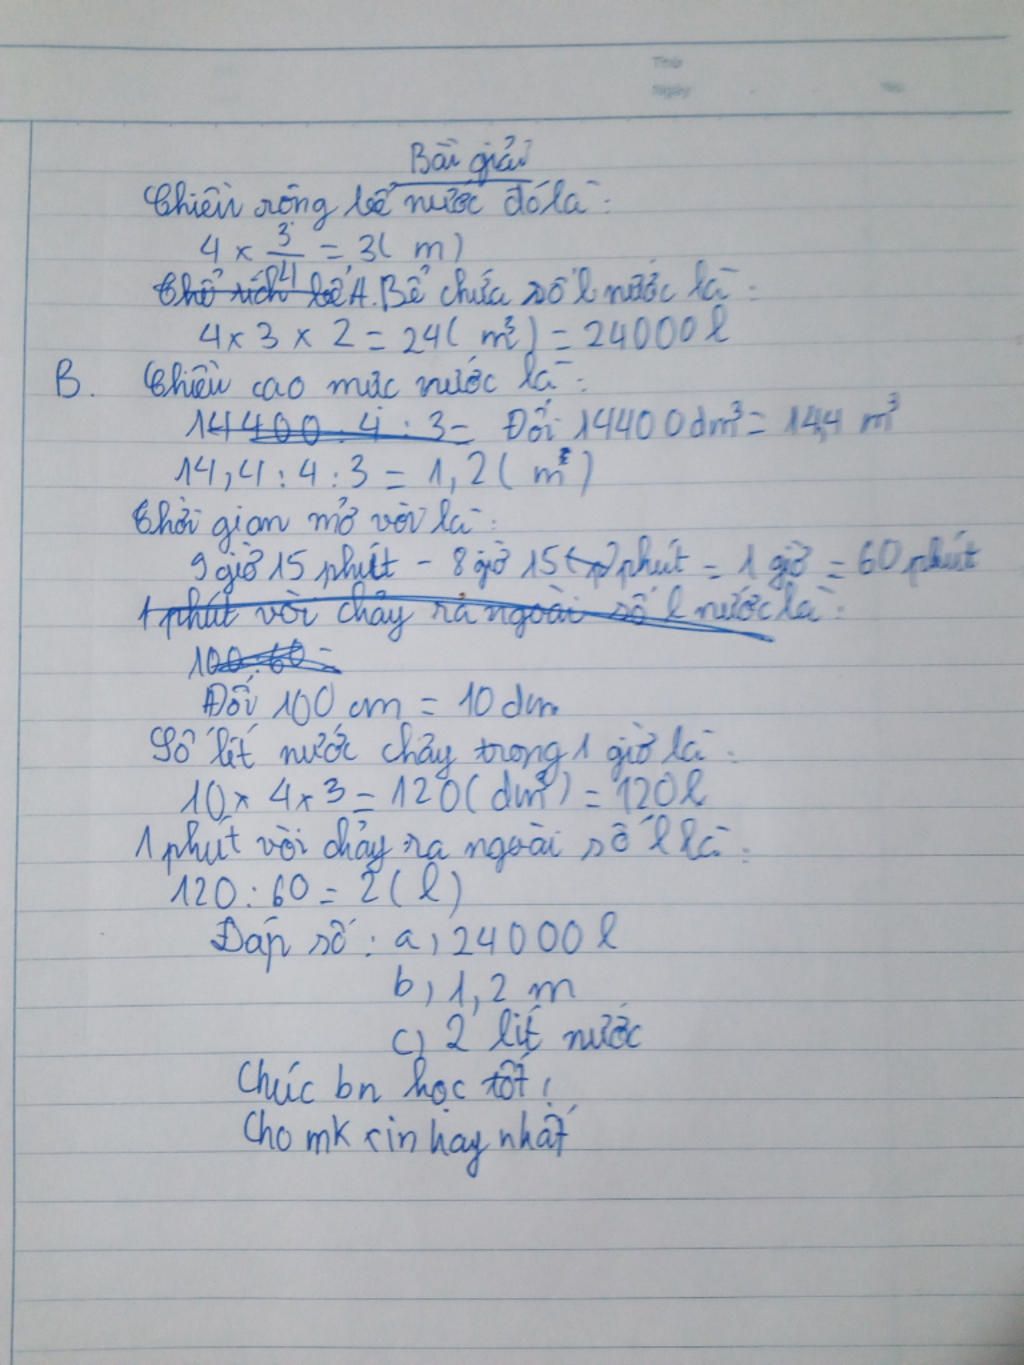 Thứ
Ngày
Bài giải
Chiều rộng bể nước đó là:
4 x 3/4 = 3( m)
Thể tích bể A. Bể chứa số l nước là:
4 x 3 x 2 = 24( m³) = 24000 l
B. Chiều cao mực nước là:
14400 : 4 : 3 = Đổi 14400 dm³ = 14,4 m³
14,4 : 4 : 3 = 1,2 ( m )
Thời gian mở vòi là:
9 giờ 15 phút - 8 giờ 15 phút = 1 giờ = 60 phút
1 phút vòi chảy ra ngoài số l nước là:
100 : 60 =
Đổi 100 cm = 10 dm
Số lít nước chảy trong 1 giờ là:
10 x 4 x 3 = 120( dm³) = 120 l
1 phút vòi chảy ra ngoài số l là:
120 : 60 = 2 ( l )
Đáp số : a, 24000 l
b, 1,2 m
c, 2 lít nước
Chúc bn học tốt !
Cho mk xin hay nhất